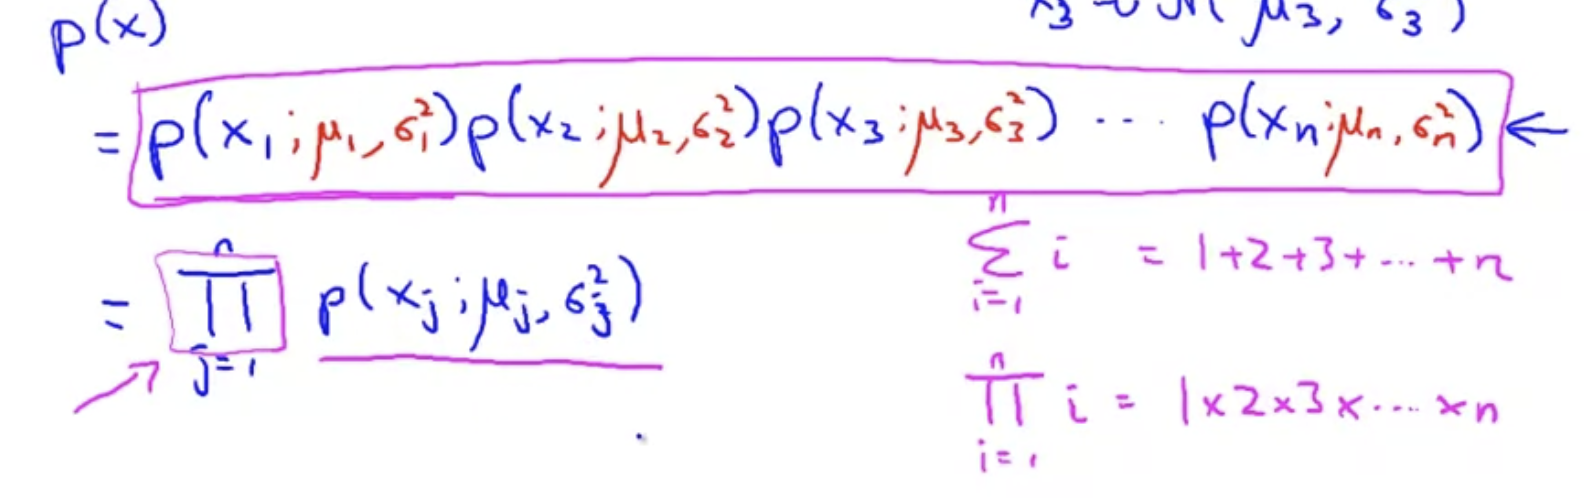 p(x)
x₃ ~ N(μ₃, σ₃)
= p(x₁; μ₁, σ₁²) p(x₂; μ₂, σ₂²) p(x₃; μ₃, σ₃²) ... p(xₙ; μₙ, σₙ²) ←
= ∏ⱼ₌₁ⁿ p(xⱼ; μⱼ, σⱼ²)
∑ᵢ₌₁ⁿ i = 1+2+3+...+n
∏ᵢ₌₁ⁿ i = 1×2×3×...×n